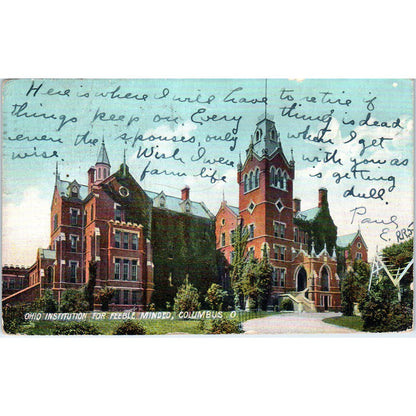 Here is where I will have to retire if
things keep on. Every thing is dead
even the spouses only when I get
wise. Wish I were with you as
farm life is getting
dull.
Paul
E.
OHIO INSTITUTION FOR FEEBLE MINDED, COLUMBUS O